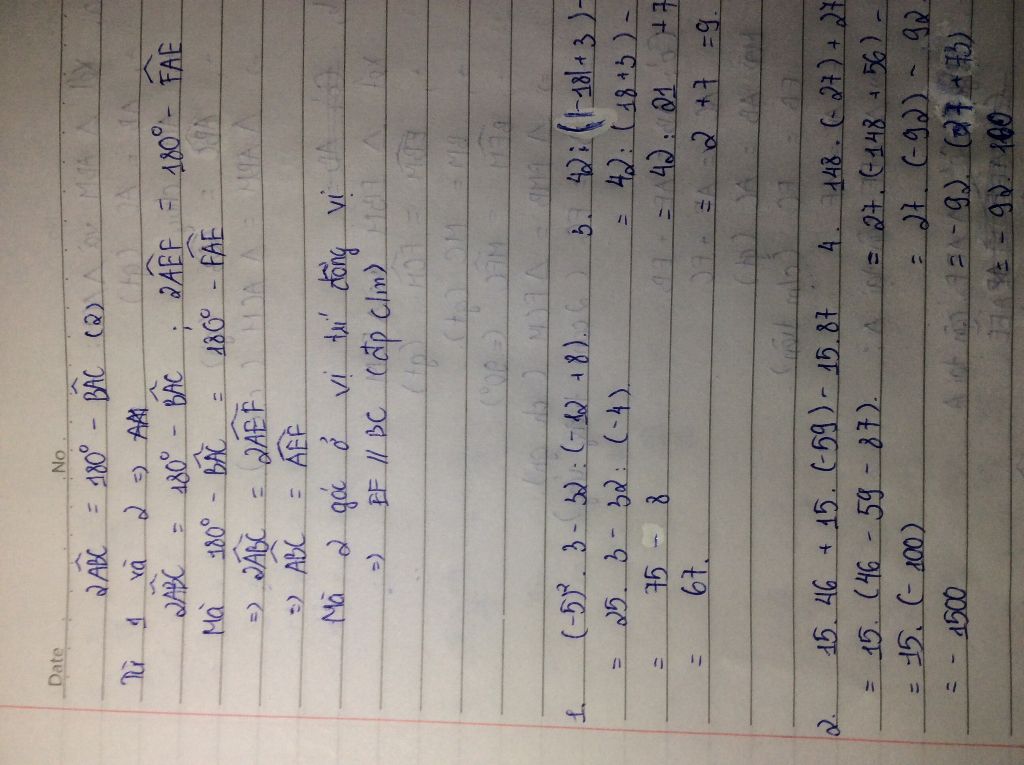 Date No.
2ABC = 180° - BAC (2)
Từ 1 và 2 =>
2ABC = 180° - BAC ; 2AEF = 180° - FAE
Mà 180° - BAC = 180° - FAE
=> 2ABC = 2AEF
=> ABC = AEF
Mà 2 góc ở vị trí đồng vị
=> EF // BC (đpcm)
1. (-5)². 3 - 32 : (-12 + 8).
= 25. 3 - 32 : (-4)
= 75 - 8
= 67.
2. 15. 46 + 15. (-59) - 15. 87
= 15. (46 - 59 - 87).
= 15. (-100)
= - 1500
3. 42 : (|-18|+3) -
= 42 : (18+3) -
= 42 : 21 +7
= 2 +7 =9.
4. 148. (-27) + 27
= 27. (-148 + 56) -
= 27. (-92) - 92.
= - 92. (27 + 73)
= - 92. 100